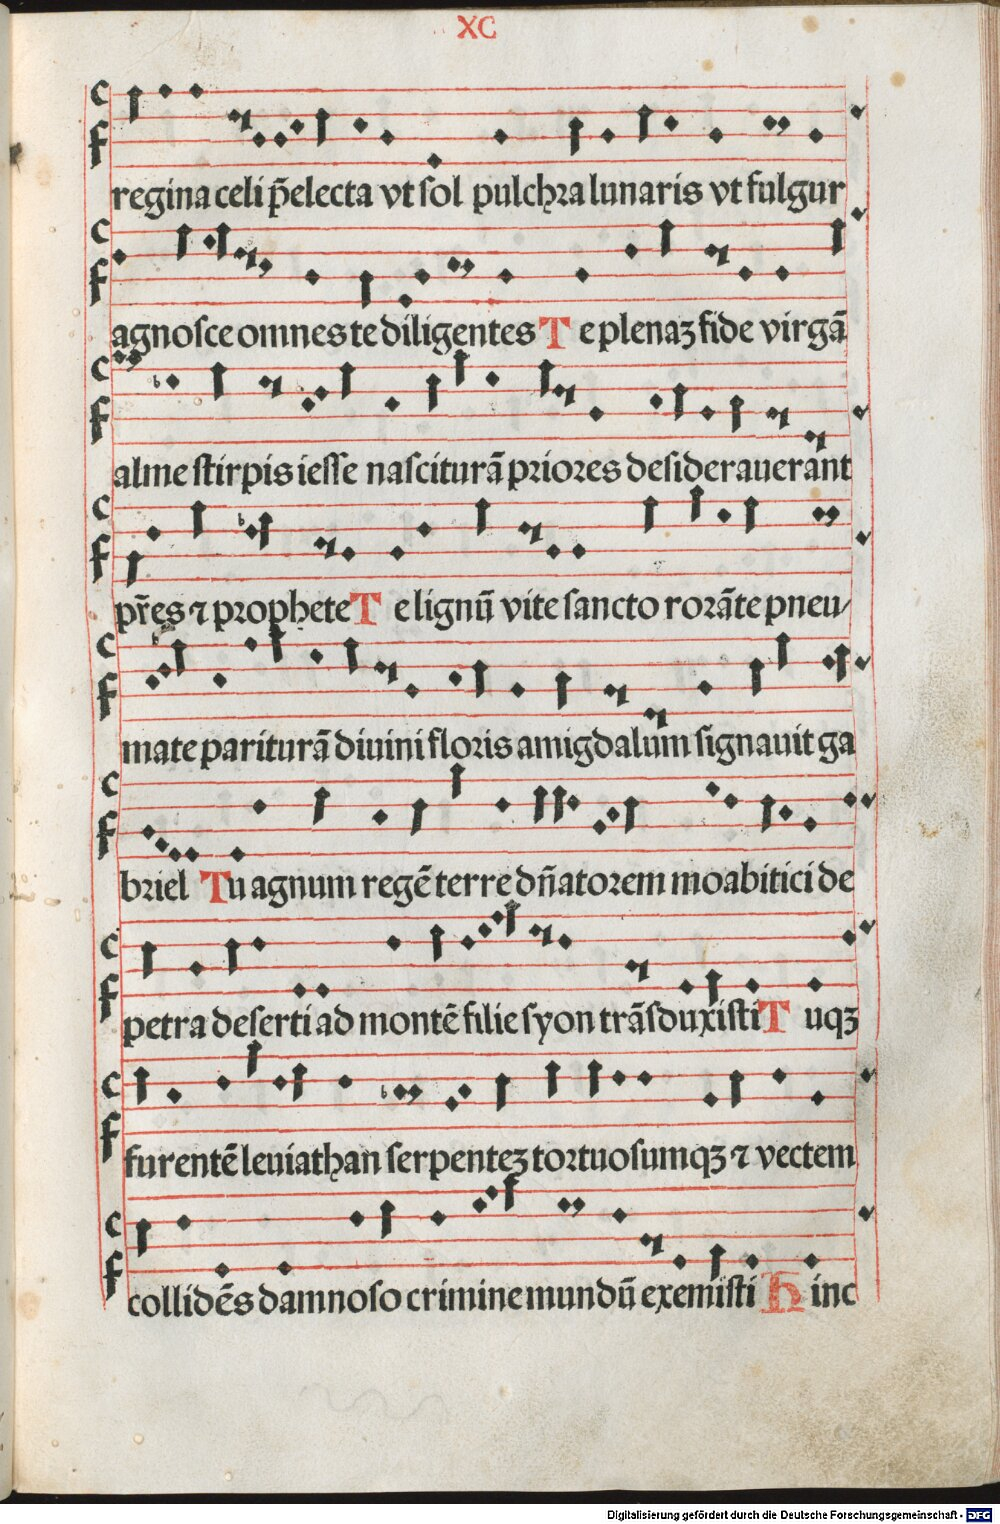 XC
regina celi p̄electa vt sol pulchra lunaris vt fulgur
agnosce omnes te diligentes Te plenaꝫ fide virgā
alme stirpis iesse nasciturā priores desiderauerant
pr̄es ⁊ prophete Te lignū vite sancto rorāte pneu/
mate pariturā diuini floris amigdalum signauit ga
briel Tu agnum regē terre dn̄atorem moabitici de
petra deserti ad montē filie syon trāsduxisti Tuqꝫ
furentē leuiathan serpenteꝫ tortuosumqꝫ ⁊ vectem
collidēs damnoso crimine mundū exemisti Hinc
Digitalisierung gefördert durch die Deutsche Forschungsgemeinschaft - DFG